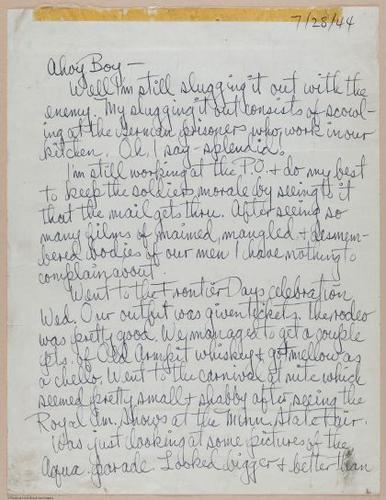 7/28/44
Ahoy Boy —
Well I'm still slugging it out with the
enemy. My slugging it out consists of scowl-
ing at the German prisoners who work in our
kitchen. Oh, I say - splendid.
I'm still working at the P.O. & do my best
to keep the soldiers morale by seeing to it
that the mail gets thru. After seeing so
many films of maimed, mangled & dismem-
bered bodies of our men I have nothing to
complain about.
Went to the Frontier Days celebration
Wed. Our outfit was given tickets. The rodeo
was pretty good. We managed to get a couple
pts. of Old Armpit whiskey & got mellow as
a chello. Went to the carnival at nite which
seemed pretty small & shabby after seeing the
Royal Am. Shows at the Minn. State Fair.
Was just looking at some pictures of the
Aqua. parade. Looked bigger & better than